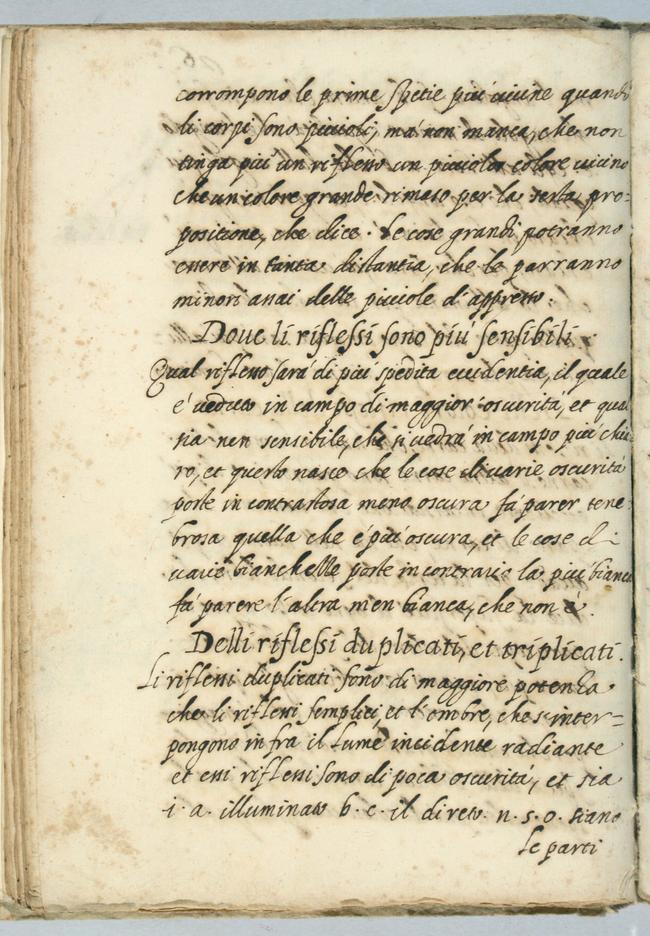 corrompono le prime spetie piu uicine quando
li corpi sono piccioli, ma non manca, che non
tinga piu un riflesso un picciolo colore uicino
che un colore grande rimoso per la sesta pro=
positione, che dice. Le cose grandi potranno
essere in tanta distantia, che le parranno
minori assai delle picciole d'appresso.
Doue li riflessi sono più sensibili.
Qual riflesso sarà di piu spedita euidentia, il quale
é ueduto in campo di maggior oscurità, et qual
sia men sensibile, che si uedrà in campo piu chia
ro, et questo nasce che le cose di uarie oscurità
poste in contrasto sa meno oscura fà parer tene
brosa quella che é piu oscura, et le cose di
uarie bianchezze poste in contrario la piu bianca
fà parere l'altra men bianca, che non é.
Delli riflessi duplicati, et triplicati.
Li riflessi duplicati sono di maggiore potenza
che li riflessi semplici, et l'ombre, che s'inter=
pongono infra il lume incidente radiante
et essi riflessi sono di poca oscurità, et sia
i. a. illuminato b. c. il direto n. s. o. siano
le parti